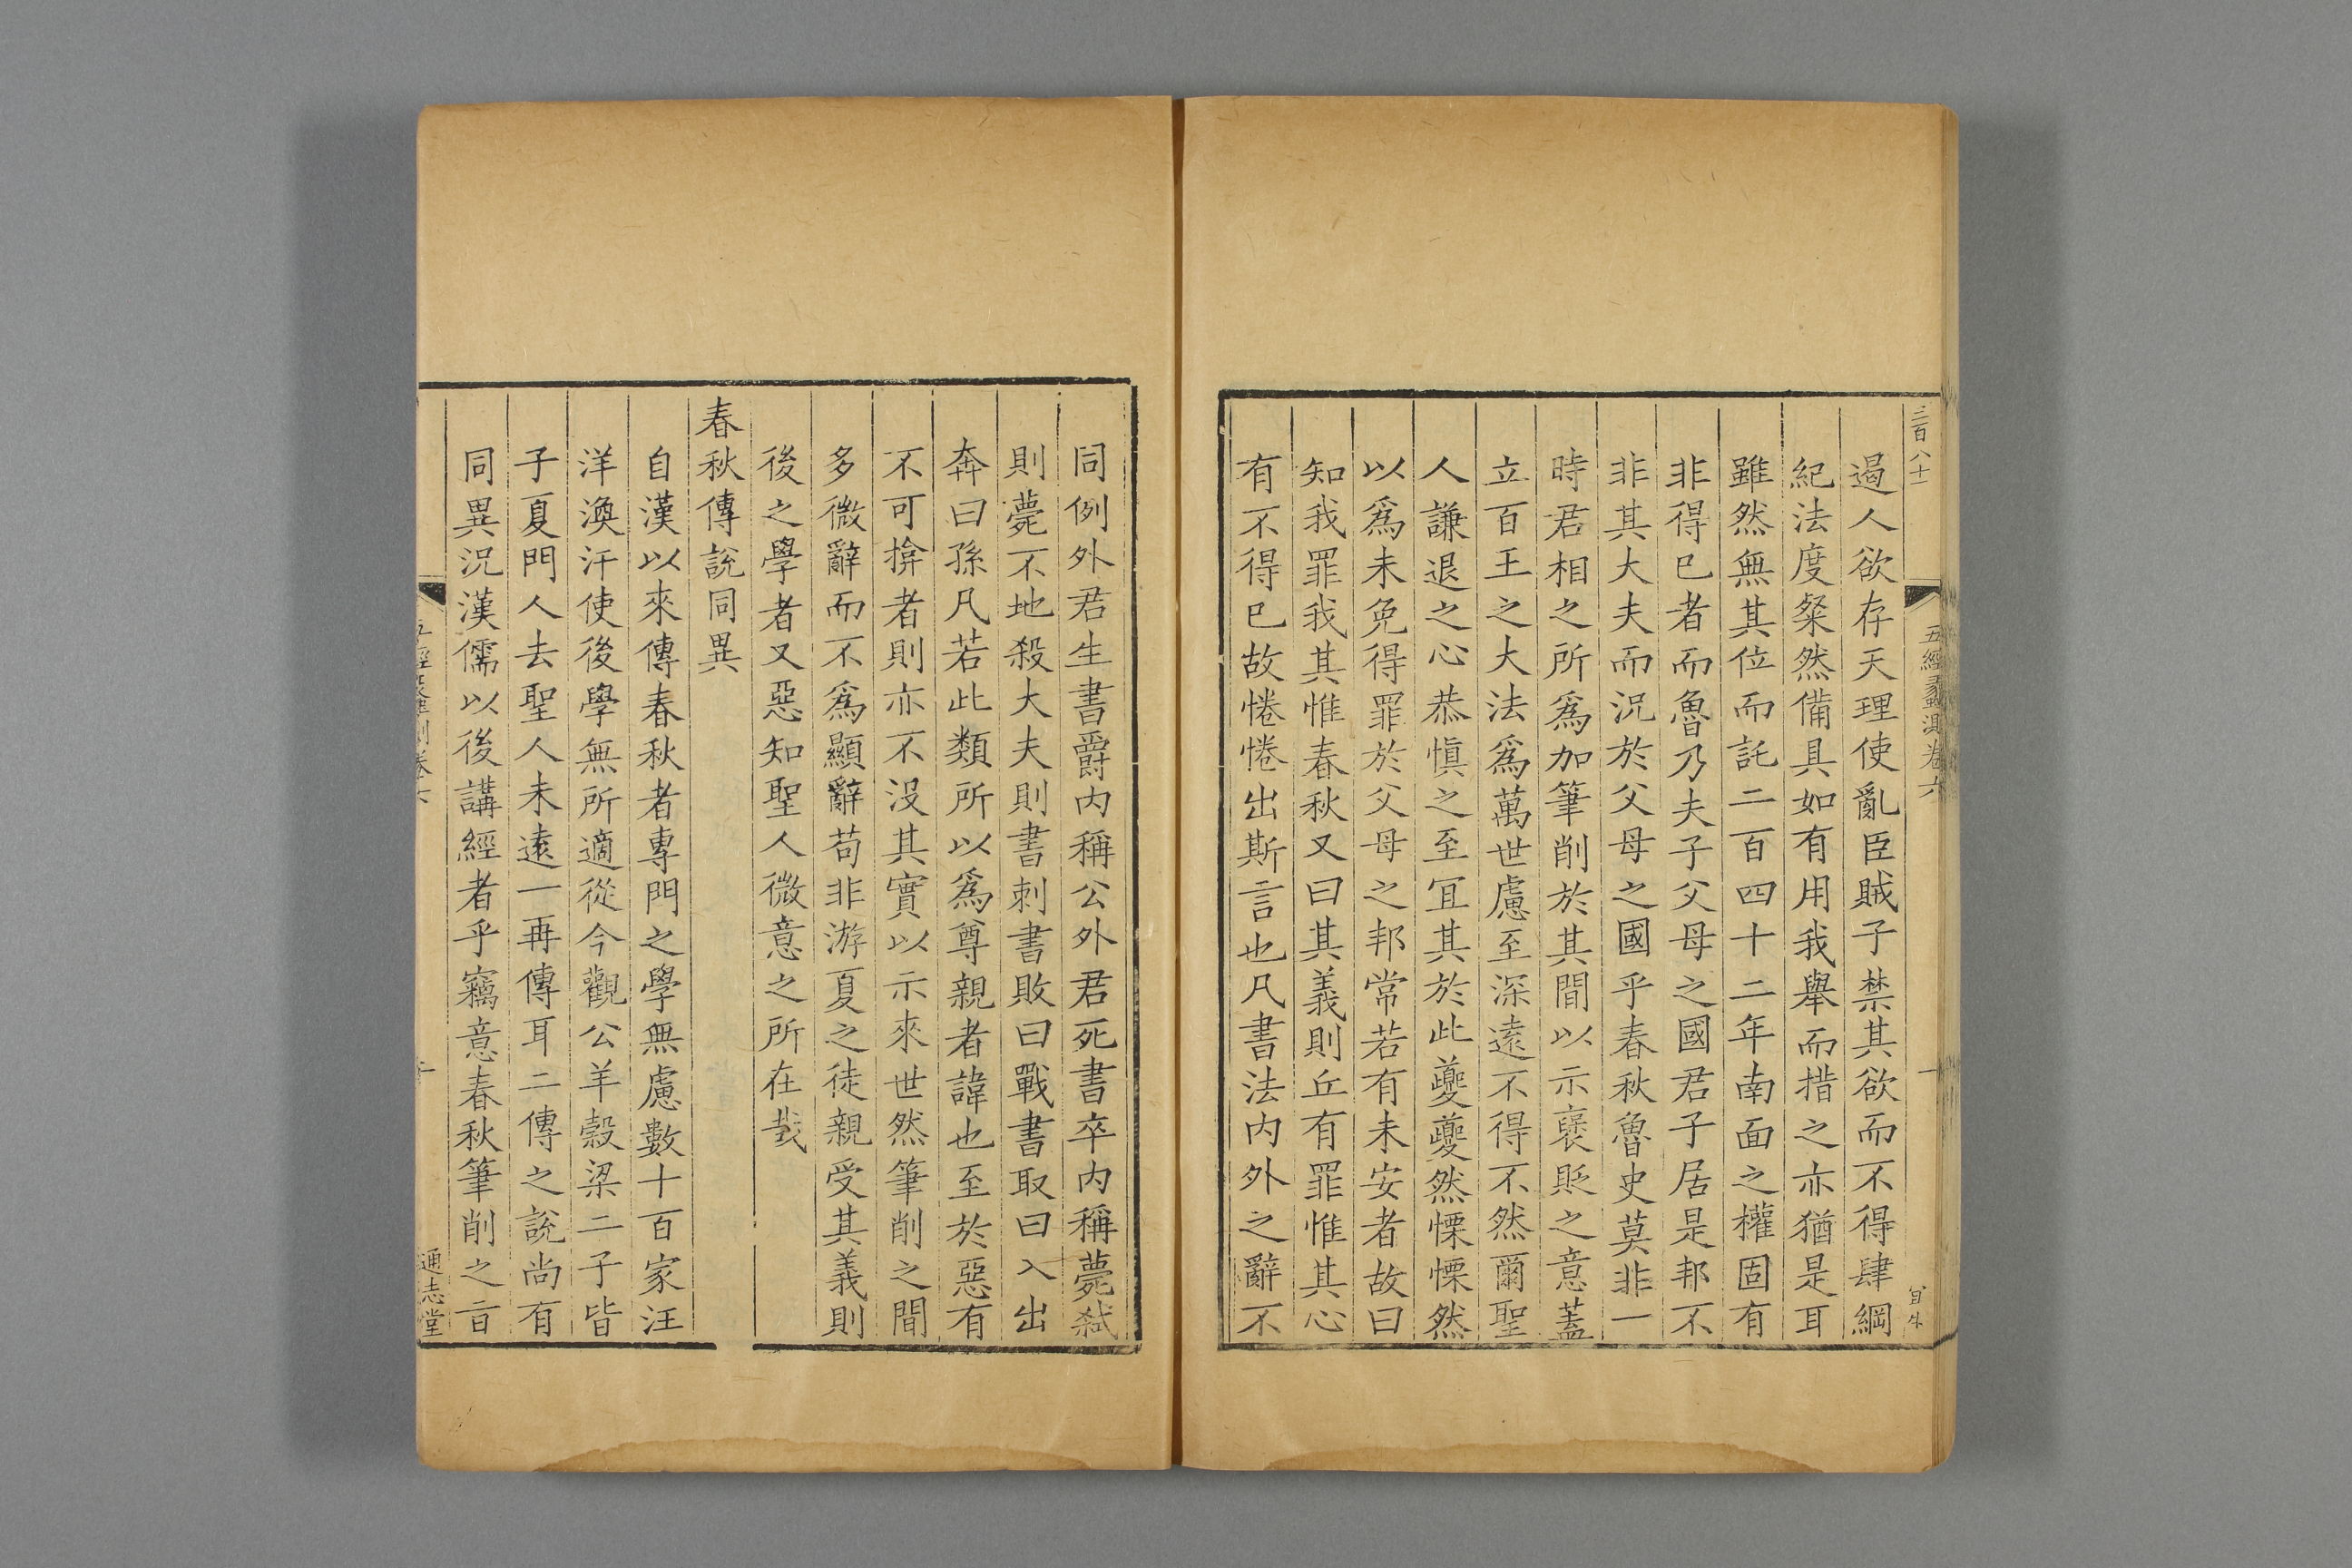 三百八十
五經蠡測卷六
一
遏人欲存天理使亂臣賊子禁其欲而不得肆綱
紀法度粲然備具如有用我舉而措之亦猶是耳
雖然無其位而託二百四十二年南面之權固有
非得已者而魯乃夫子父母之國君子居是邦不
非其大夫而況於父母之國乎春秋魯史莫非一
時君相之所爲加筆削於其間以示褒貶之意蓋
立百王之大法爲萬世慮至深遠不得不然爾聖
人謙退之心恭愼之至冝其於此夔夔然慄慄然
以爲未免得罪於父母之邦常若有未安者故曰
知我罪我其惟春秋又曰其義則丘有罪惟其心
有不得已故惓惓出斯言也凡書法内外之辭不
同例外君生書爵内稱公外君死書卒内稱薨弑
則薨不地殺大夫則書刺書敗曰戰書取曰入出
奔曰孫凡若此類所以爲尊親者諱也至於惡有
不可揜者則亦不没其實以示來世然筆削之間
多微辭而不爲顯辭苟非游夏之徒親受其義則
後之學者又惡知聖人微意之所在哉
春秋傳說同異
自漢以來傳春秋者專門之學無慮數十百家汪
洋渙汗使後學無所適從今觀公羊穀梁二子皆
子夏門人去聖人未遠一再傳耳二傳之說尚有
同異況漢儒以後講經者乎竊意春秋筆削之旨
通志堂